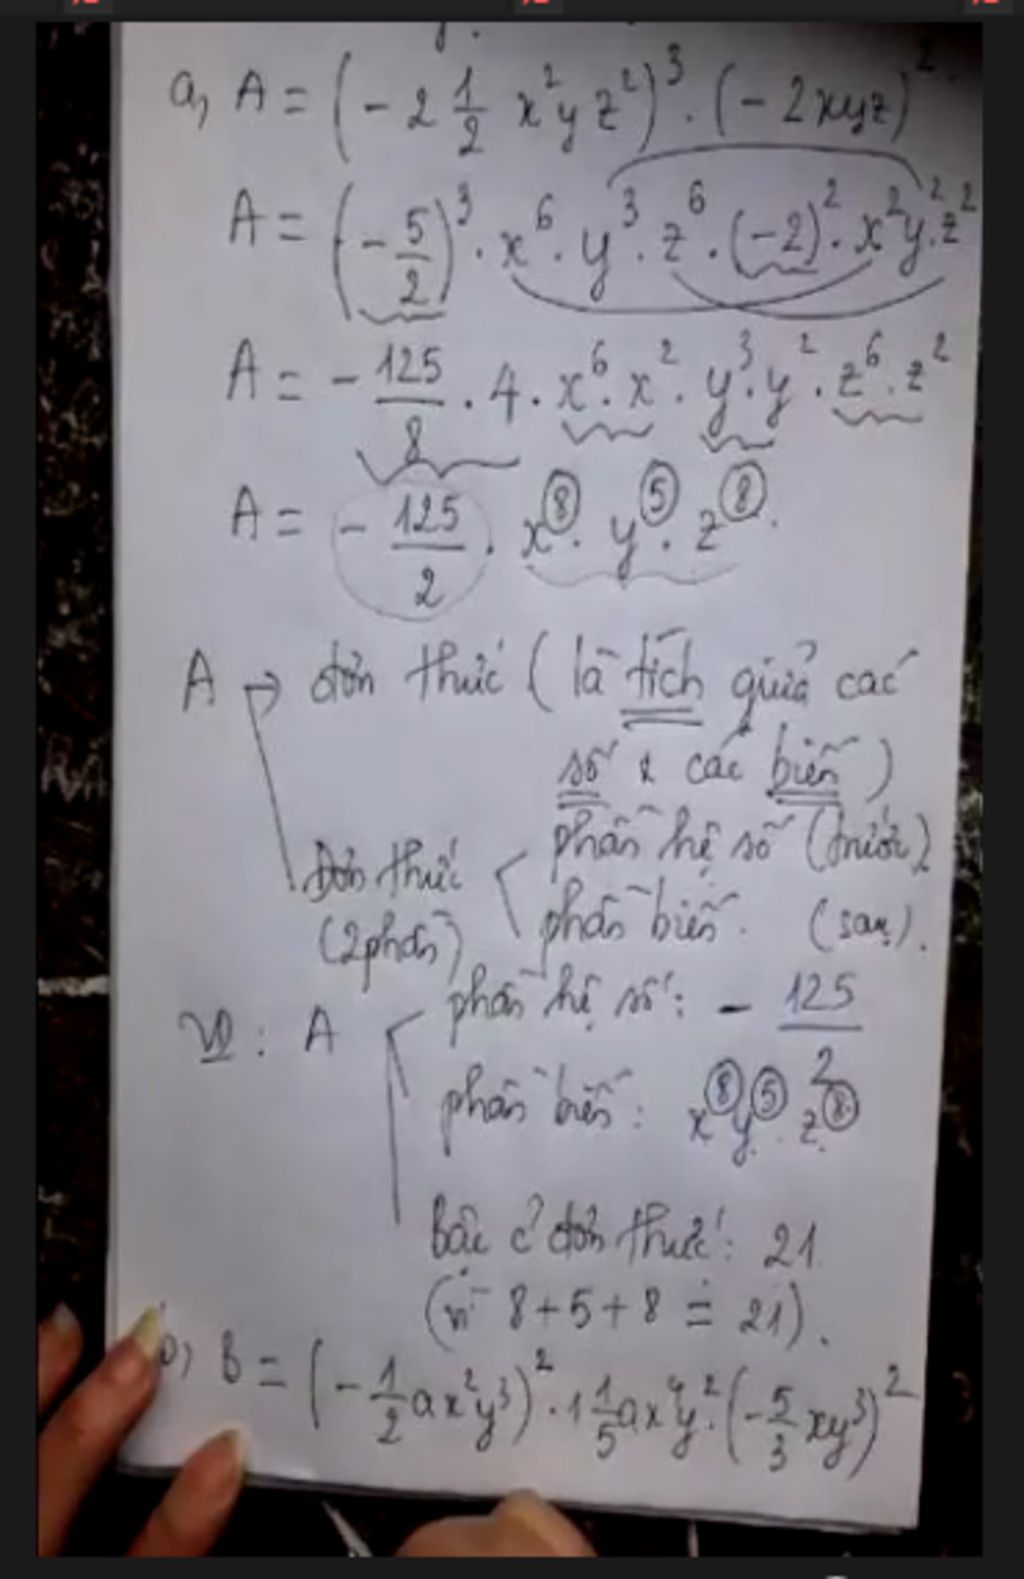 a, A = (- 2 1/2 x²yz²)³ . (- 2xyz)².
A = (- 5/2)³ . x⁶ . y³ . z⁶ . (-2)² . x²y².z²
A = - 125/8 . 4 . x⁶ . x² . y³ . y² . z⁶ . z²
A = - 125/2 . x⁸ . y⁵ . z⁸.
A → đơn thức (là tích giữa các
số & các biến)
phần hệ số (trước)
Đơn thức
phần biến. (sau).
(2 phần)
phần hệ số: - 125/2
VD: A
phần biến: x⁸y⁵z⁸
Bậc củ đơn thức: 21
(vì 8+5+8 = 21).
b, B = (- 1/2 ax²y³)² . 1 1/5 ax⁴y² . (- 5/3 xy³)²